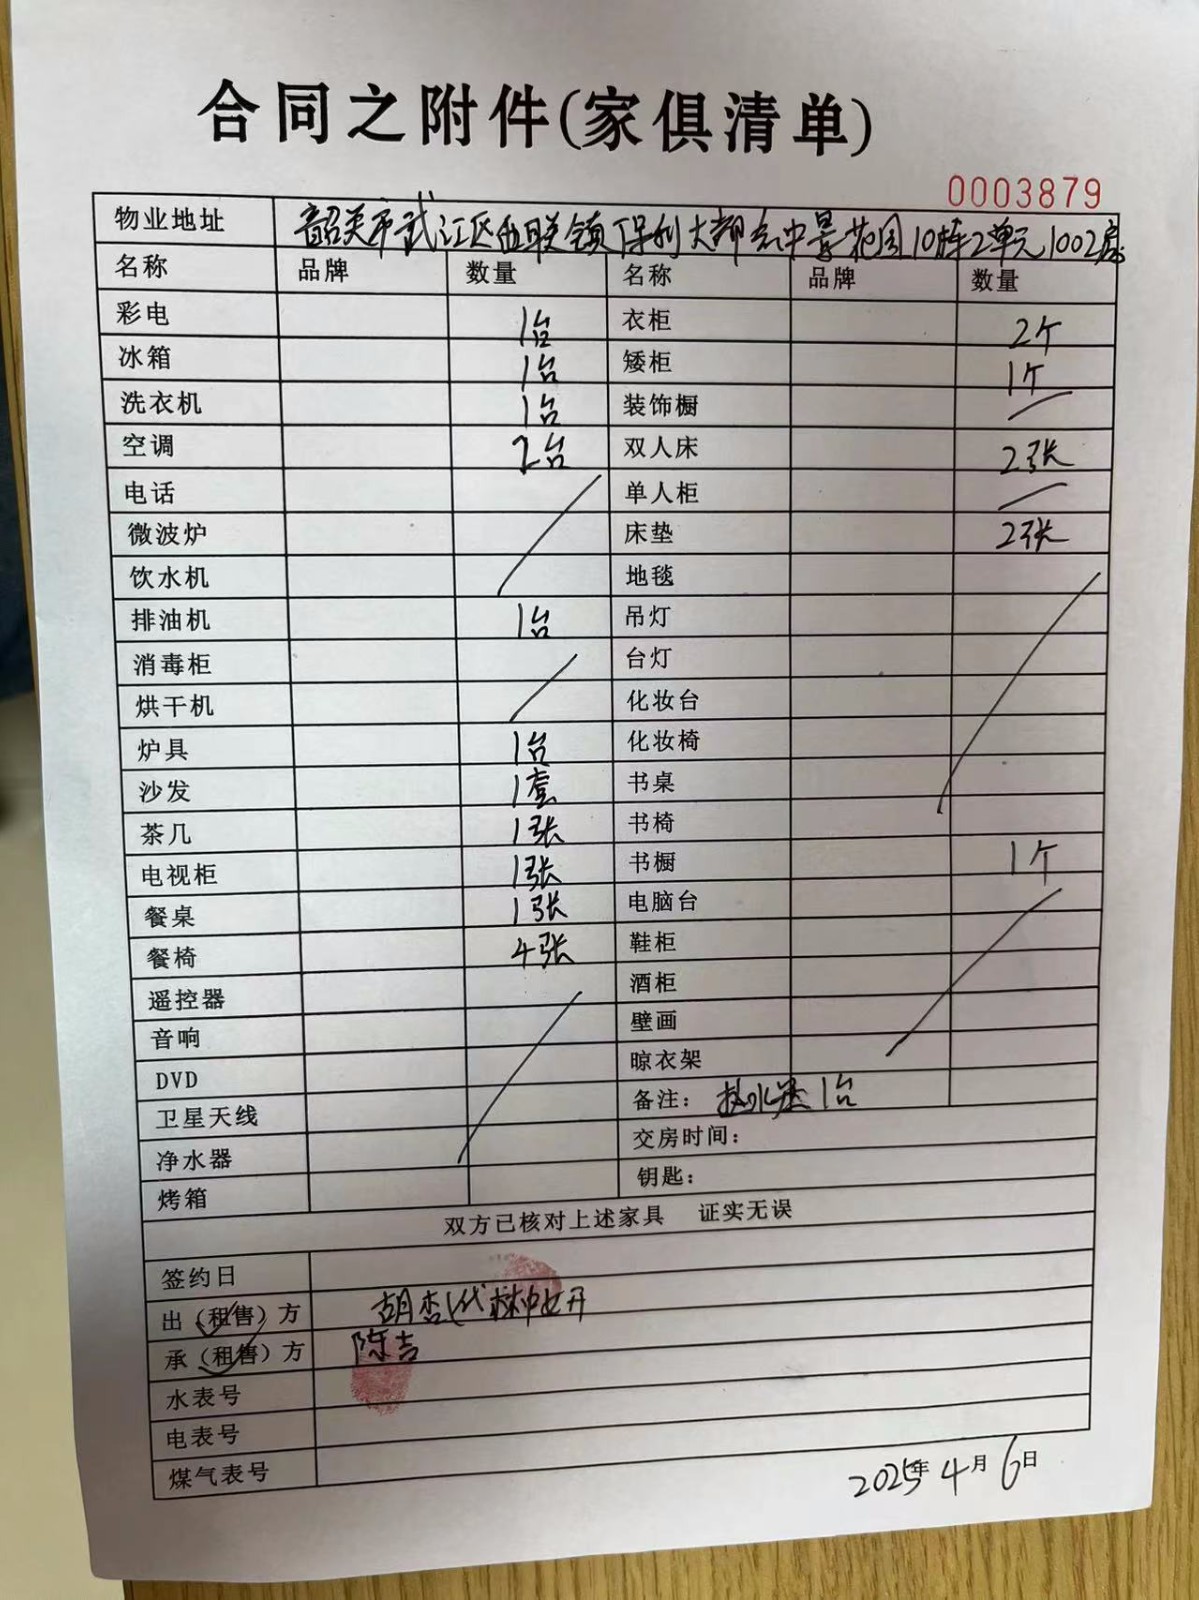 合同之附件(家俱清单)
0003879
物业地址 韶关市武江区西联镇保利大都会中景花园10栋2单元1002房
名称 品牌 数量 名称 品牌 数量
彩电 1台 衣柜 2个
冰箱 1台 矮柜 1个
洗衣机 1台 装饰橱
空调 2台 双人床 2张
电话 单人柜
微波炉 床垫 2张
饮水机 地毯
排油机 1台 吊灯
消毒柜 台灯
烘干机 化妆台
炉具 1台 化妆椅
沙发 1套 书桌
茶几 1张 书椅
电视柜 1张 书橱 1个
餐桌 1张 电脑台
餐椅 4张 鞋柜
遥控器 酒柜
音响 壁画
DVD 晾衣架
卫星天线 备注: 热水器1台
净水器 交房时间:
烤箱 钥匙:
双方已核对上述家具 证实无误
签约日
出(租售)方 胡杏代林
承(租售)方 陈吉
水表号
电表号
煤气表号
2025年4月6日